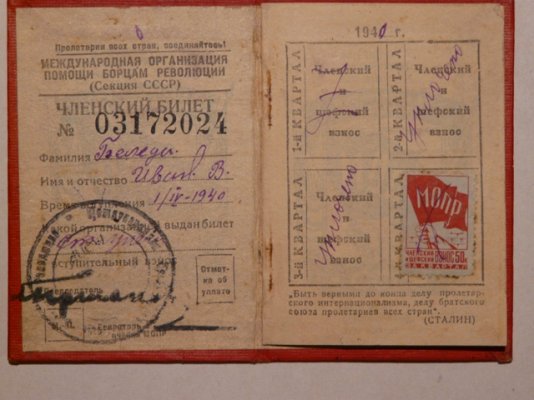 Пролетарии всех стран, соединяйтесь!
МЕЖДУНАРОДНАЯ ОРГАНИЗАЦИЯ
ПОМОЩИ БОРЦАМ РЕВОЛЮЦИИ
(Секция СССР)
ЧЛЕНСКИЙ БИЛЕТ
№ 03172024
Фамилия
Имя и отчество Иван В.
Время вступления 1/IV-1940
кой организацией выдан билет
вступительный взнос
Отмет-
ка об
уплате
Председатель
М. П.
Секретарь
ячейки МОПР
1940 г.
1-й КВАРТАЛ
Членский
и
шефский
взнос
2-й КВАРТАЛ
Членский
и
шефский
взнос
3-й КВАРТАЛ
Членский
и
шефский
взнос
КВАРТАЛ
МОПР
ЧЛЕНСКИЙ
И ШЕФСКИЙ
ВЗНОС 50к.
ЗА КВАРТАЛ
„Быть верными до конца делу пролетар-
ского интернационализма, делу братского
союза пролетариев всех стран".
(СТАЛИН)